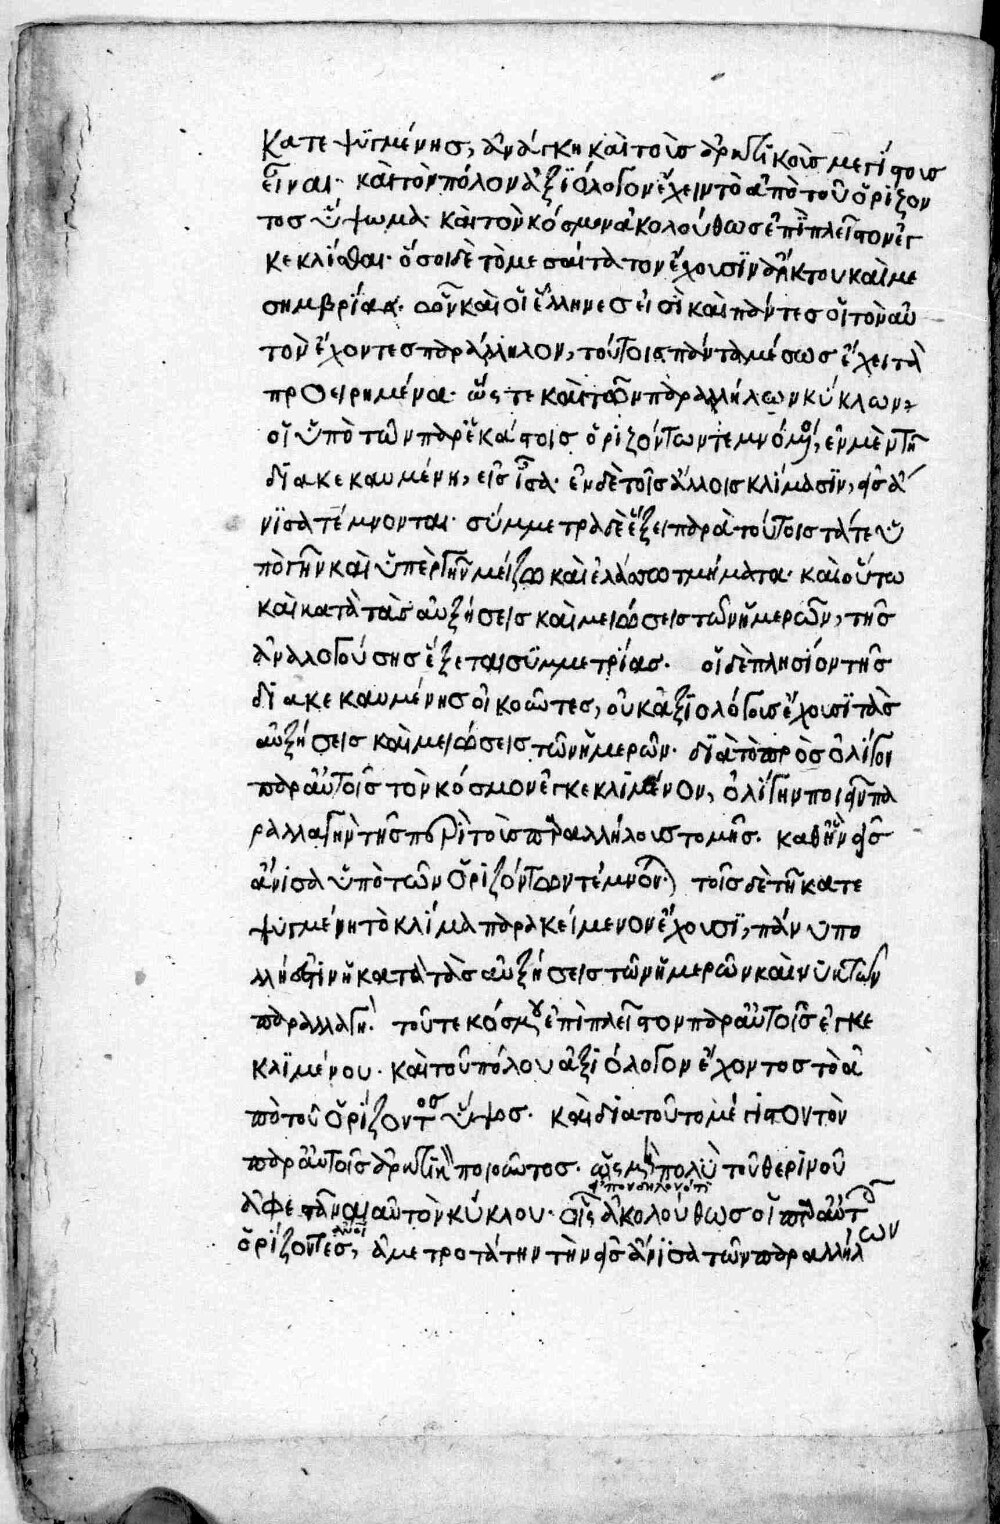 κατεψυγμένης, ἀνάγκη καὶ τοῖς ἀρκτικοῖς μεγίστοις
εἶναι· καὶ τὸν πόλον ἀξιόλογον ἔχειν τὸ ἀπὸ τοῦ ὁρίζον
τος ὕψωμα· καὶ τὸν κόσμον ἀκολούθως ἐπὶ πλεῖστον ἐγ
κεκλίσθαι· ὅσοι δὲ τὸ μεσαίτατον ἔχουσιν ἄρκτου καὶ με
σημβρίας· ὧν καὶ οἱ ἕλληνές εἰσι καὶ πάντες οἱ τὸν αὐ
τὸν ἔχοντες παράλληλον, τούτοις πάντα μέσως ἔχει τὰ
προειρημένα· ὥστε καὶ τῶν παραλλήλων κύκλων,
οἳ ὑπὸ τῶν παρ' ἑκάστοις ὁριζόντων τεμνόμενοι, ἐν μὲν τῇ
διακεκαυμένῃ, εἰς ἶσα· ἐν δὲ τοῖς ἄλλοις κλίμασιν, εἰς ἄ
νισα τέμνονται· σύμμετρα δὲ ἕξει παρὰ τούτοις τά τε ὑ
πὸ γῆν καὶ ὑπὲρ γῆν μείζω καὶ ἐλάττω τμήματα· καὶ οὕτω
καὶ κατὰ τὰς αὐξήσεις καὶ μειώσεις τῶν ἡμερῶν, τῆς
ἀναλογούσης ἕξεται συμμετρίας. οἱ δὲ πλησίον τῆς
διακεκαυμένης οἰκοῦντες, οὐκ ἀξιολόγους ἔχουσι τὰς
αὐξήσεις καὶ μειώσεις τῶν ἡμερῶν· διὰ τὸ πρὸς ὀλίγον
παρ' αὐτοῖς τὸν κόσμον ἐγκεκλιμένον, ὀλίγην ποιεῖν πα
ραλλαγὴν τῆς περὶ τοῖς παραλλήλοις τομῆς. καθ' ἣν εἰς
ἄνισα ὑπὸ τῶν ὁριζόντων τέμνονται τοῖς δὲ τῇ κατε
ψυγμένῃ τὸ κλίμα παρακείμενον ἔχουσι, πάνυ πο
λλή ἐστιν ἡ κατὰ τὰς αὐξήσεις τῶν ἡμερῶν καὶ νυκτῶν
παραλλαγή. τοῦ τε κόσμου ἐπὶ πλεῖστον παρ' αὐτοῖς ἐγκε
κλιμένου· καὶ τοῦ πόλου ἀξιόλογον ἔχοντος τὸ ἀ
πὸ τοῦ ὁρίζοντος ὕψος· καὶ διὰ τοῦτο μέγιστον τὸν
παρ' αὐτοῖς ἀρκτικὸν ποιοῦντος· ὡς μὴ πολὺ τοῦ θερινοῦ
ἀφεστάναι αὐτὸν κύκλου· οἷς ἀκολούθως οἱ παρ' αὐτοῖς
ὁρίζοντες, ἀμετροτάτην τὴν εἰς ἄνισα τῶν παραλλήλων